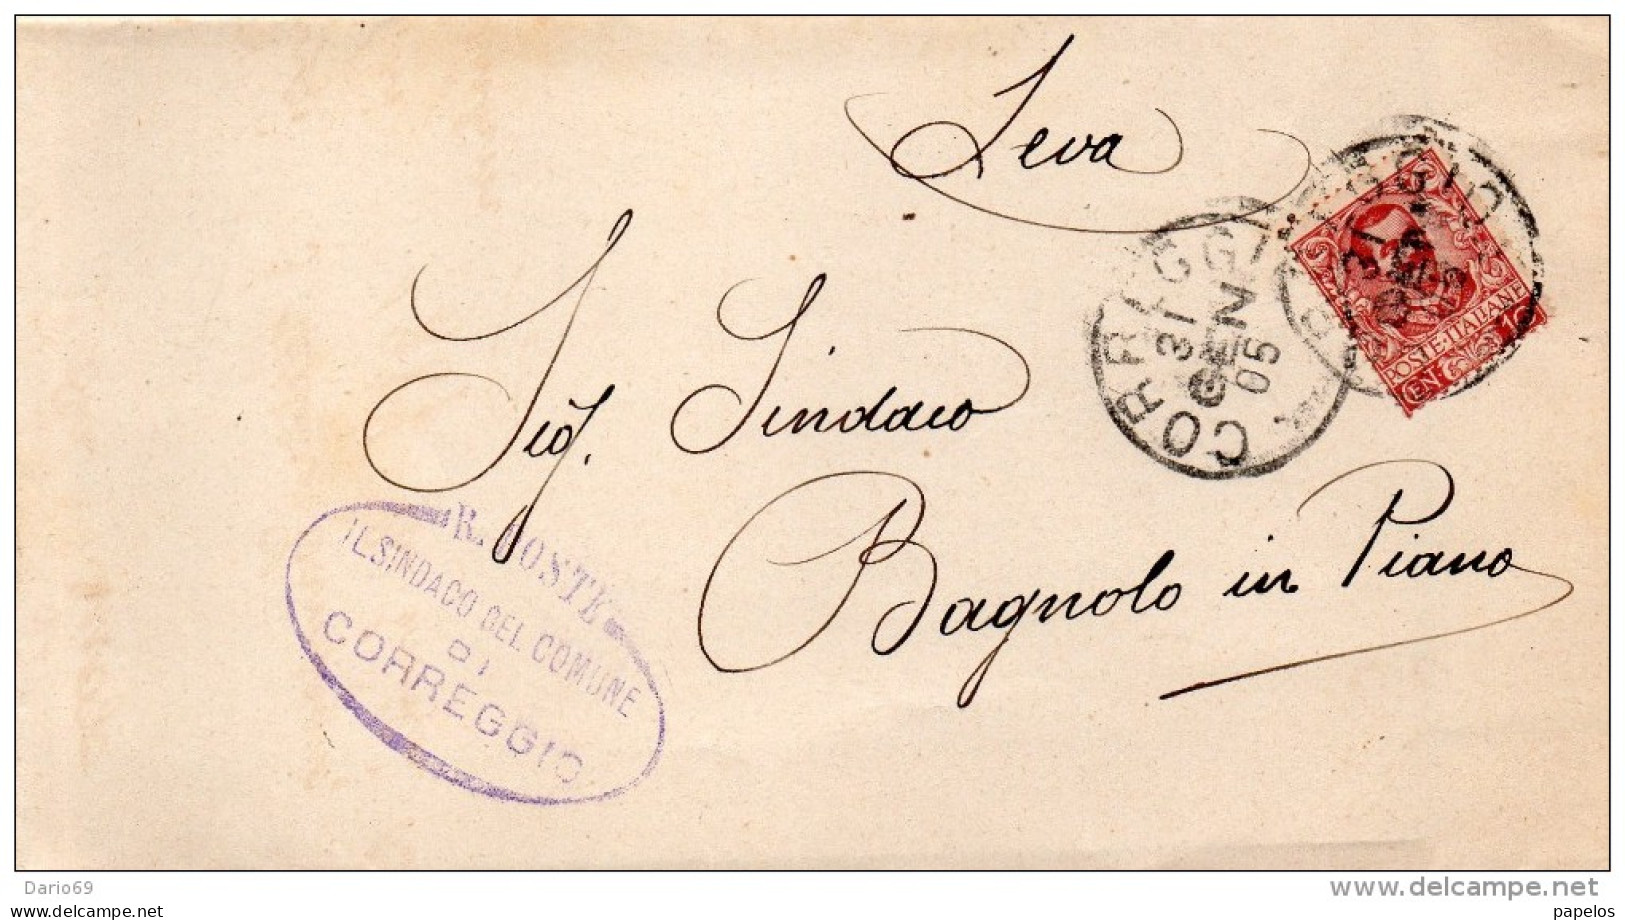 Leva
CORREGGIO
31 GEN 05
POSTE·ITALIANE
CEN. 10
Sig. Sindaco
Bagnolo in Piano
R. POSTE
IL SINDACO DEL COMUNE
DI
CORREGGIO
Dario69
www.delcampe.net
papelos